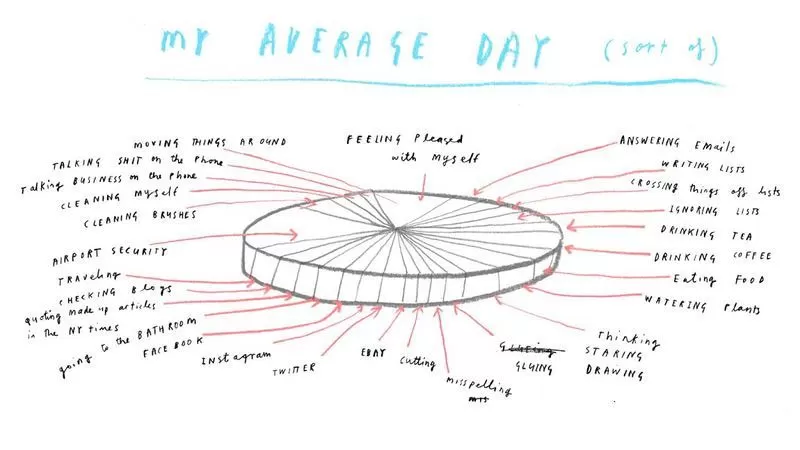 MY AVERAGE DAY (sort of)
MOVING THINGS AROUND
TALKING SHIT on the Phone
Talking BUSINESS on the Phone
CLEANING Myself
CLEANING BRUSHES
AIRPORT SECURITY
TRAVELING
CHECKING Blogs
quoting made up articles
in the NY times
going to the BATHROOM
FACEBOOK
Instagram
TWITTER
EBAY
Cutting
misspelling
FEELING Pleased
with Myself
ANSWERING Emails
WRITING LISTS
CROSSING things off lists
IGNORING LISTS
DRINKING TEA
DRINKING COFFEE
Eating FOOD
WATERING Plants
Thinking
STARING
DRAWING
GLUING